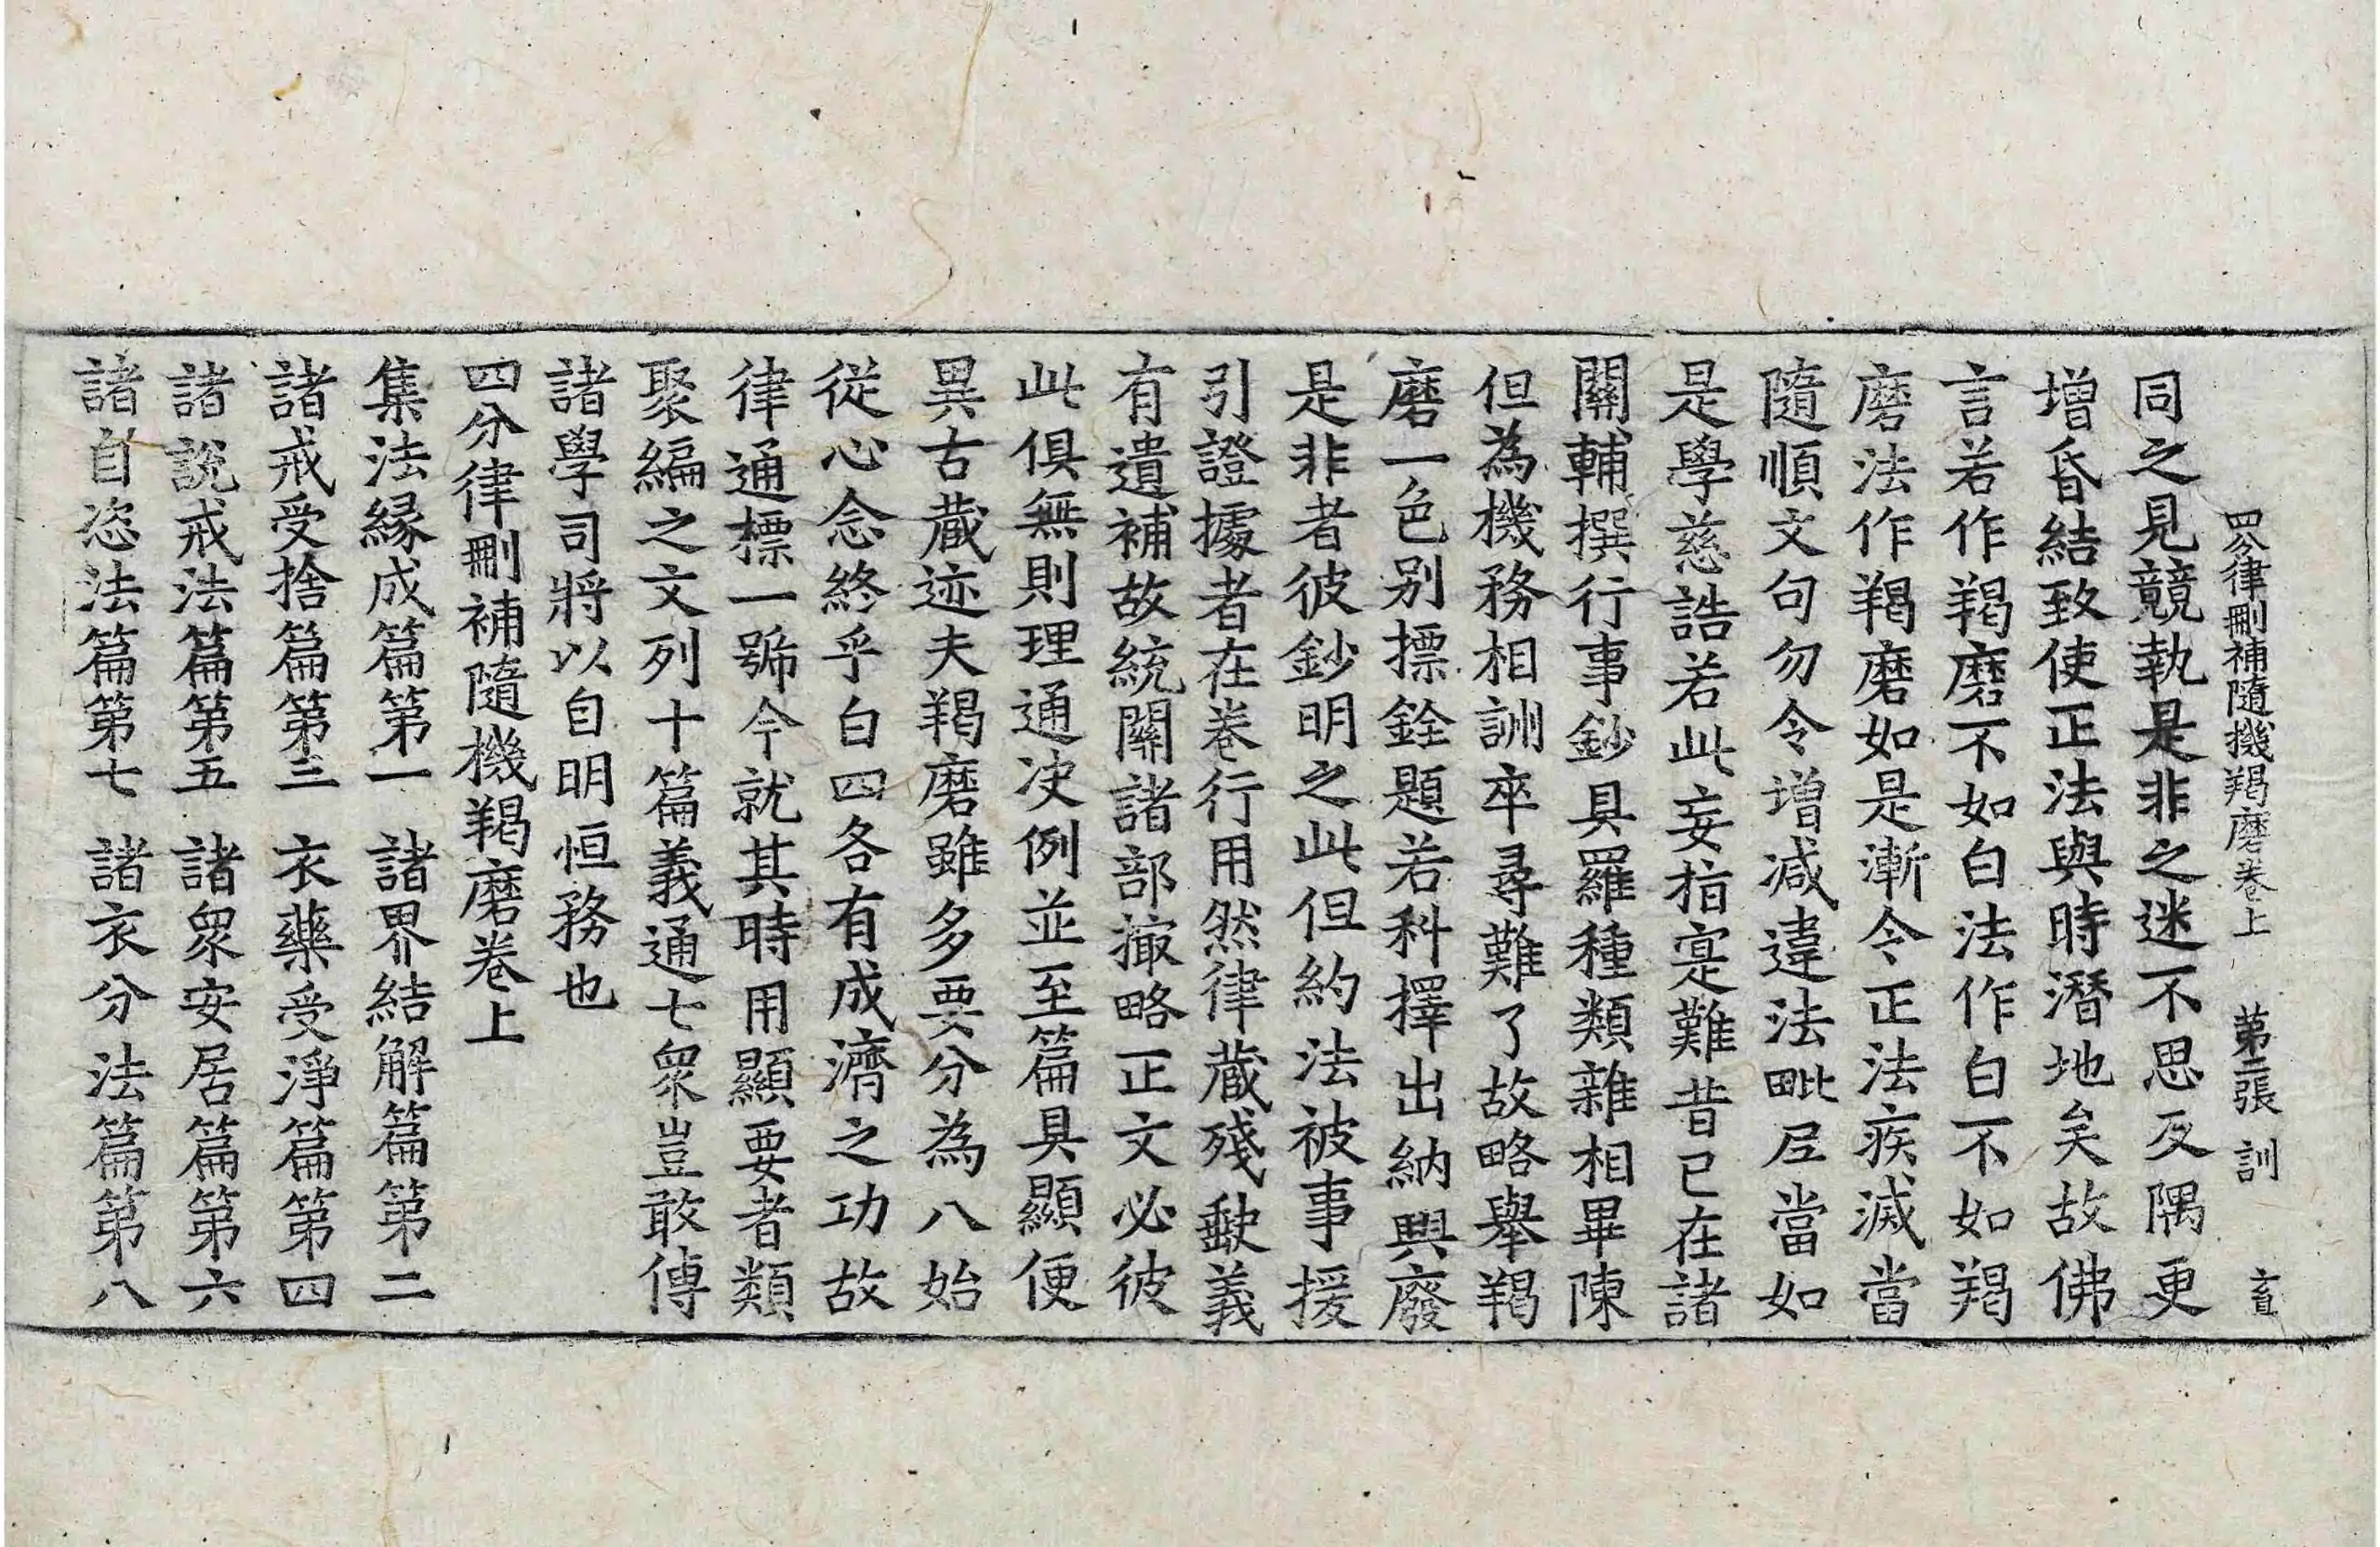 四分律刪補隨機羯磨卷上 第二張 訓 盲
同之見競執是非之迷不思反隅更
增昏結致使正法與時潛地矣故佛
言若作羯磨不如白法作白不如羯
磨法作羯磨如是漸令正法疾滅當
隨順文句勿令增減違法毗尼當如
是學慈誥若此妄指寔難昔已在諸
關輔撰行事鈔具羅種類雜相畢陳
但為機務相訓卒尋難了故略舉羯
磨一色別摽銓題若科擇出納興廢
是非者彼鈔明之此但約法被事援
引證據者在卷行用然律藏殘缺義
有遺補故統關諸部撮略正文必彼
此俱無則理通决例並至篇具顯便
異古藏迹夫羯磨雖多要分為八始
從心念終乎白四各有成濟之功故
律通標一號今就其時用顯要者類
聚編之文列十篇義通七眾豈敢傳
諸學司將以自明恒務也
四分律刪補隨機羯磨卷上
集法緣成篇第一 諸界結解篇第二
諸戒受捨篇第三 衣藥受淨篇第四
諸說戒法篇第五 諸眾安居篇第六
諸自恣法篇第七 諸衣分法篇第八